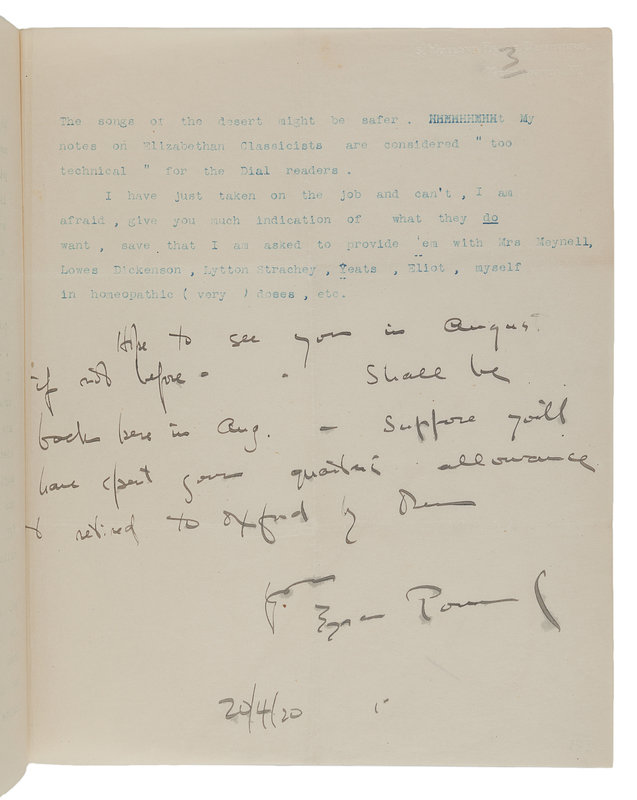 3
The songs of the desert might be safer . HHHHHHHHt My
notes on Elizabethan Classicists are considered " too
technical " for the Dial readers .
I have just taken on the job and can't , I am
afraid , give you much indication of what they do
want , save that I am asked to provide 'em with Mrs Meynell,
Lowes Dickenson , Lytton Strachey , Yeats , Eliot , myself
in homeopathic ( very ) doses , etc.
Hope to see you in August
if not before - - Shall be
back here in Aug. - Suppose you'll
have spent your quarter's allowance
& retired to Oxford by then
Ezra Pound
20/4/20